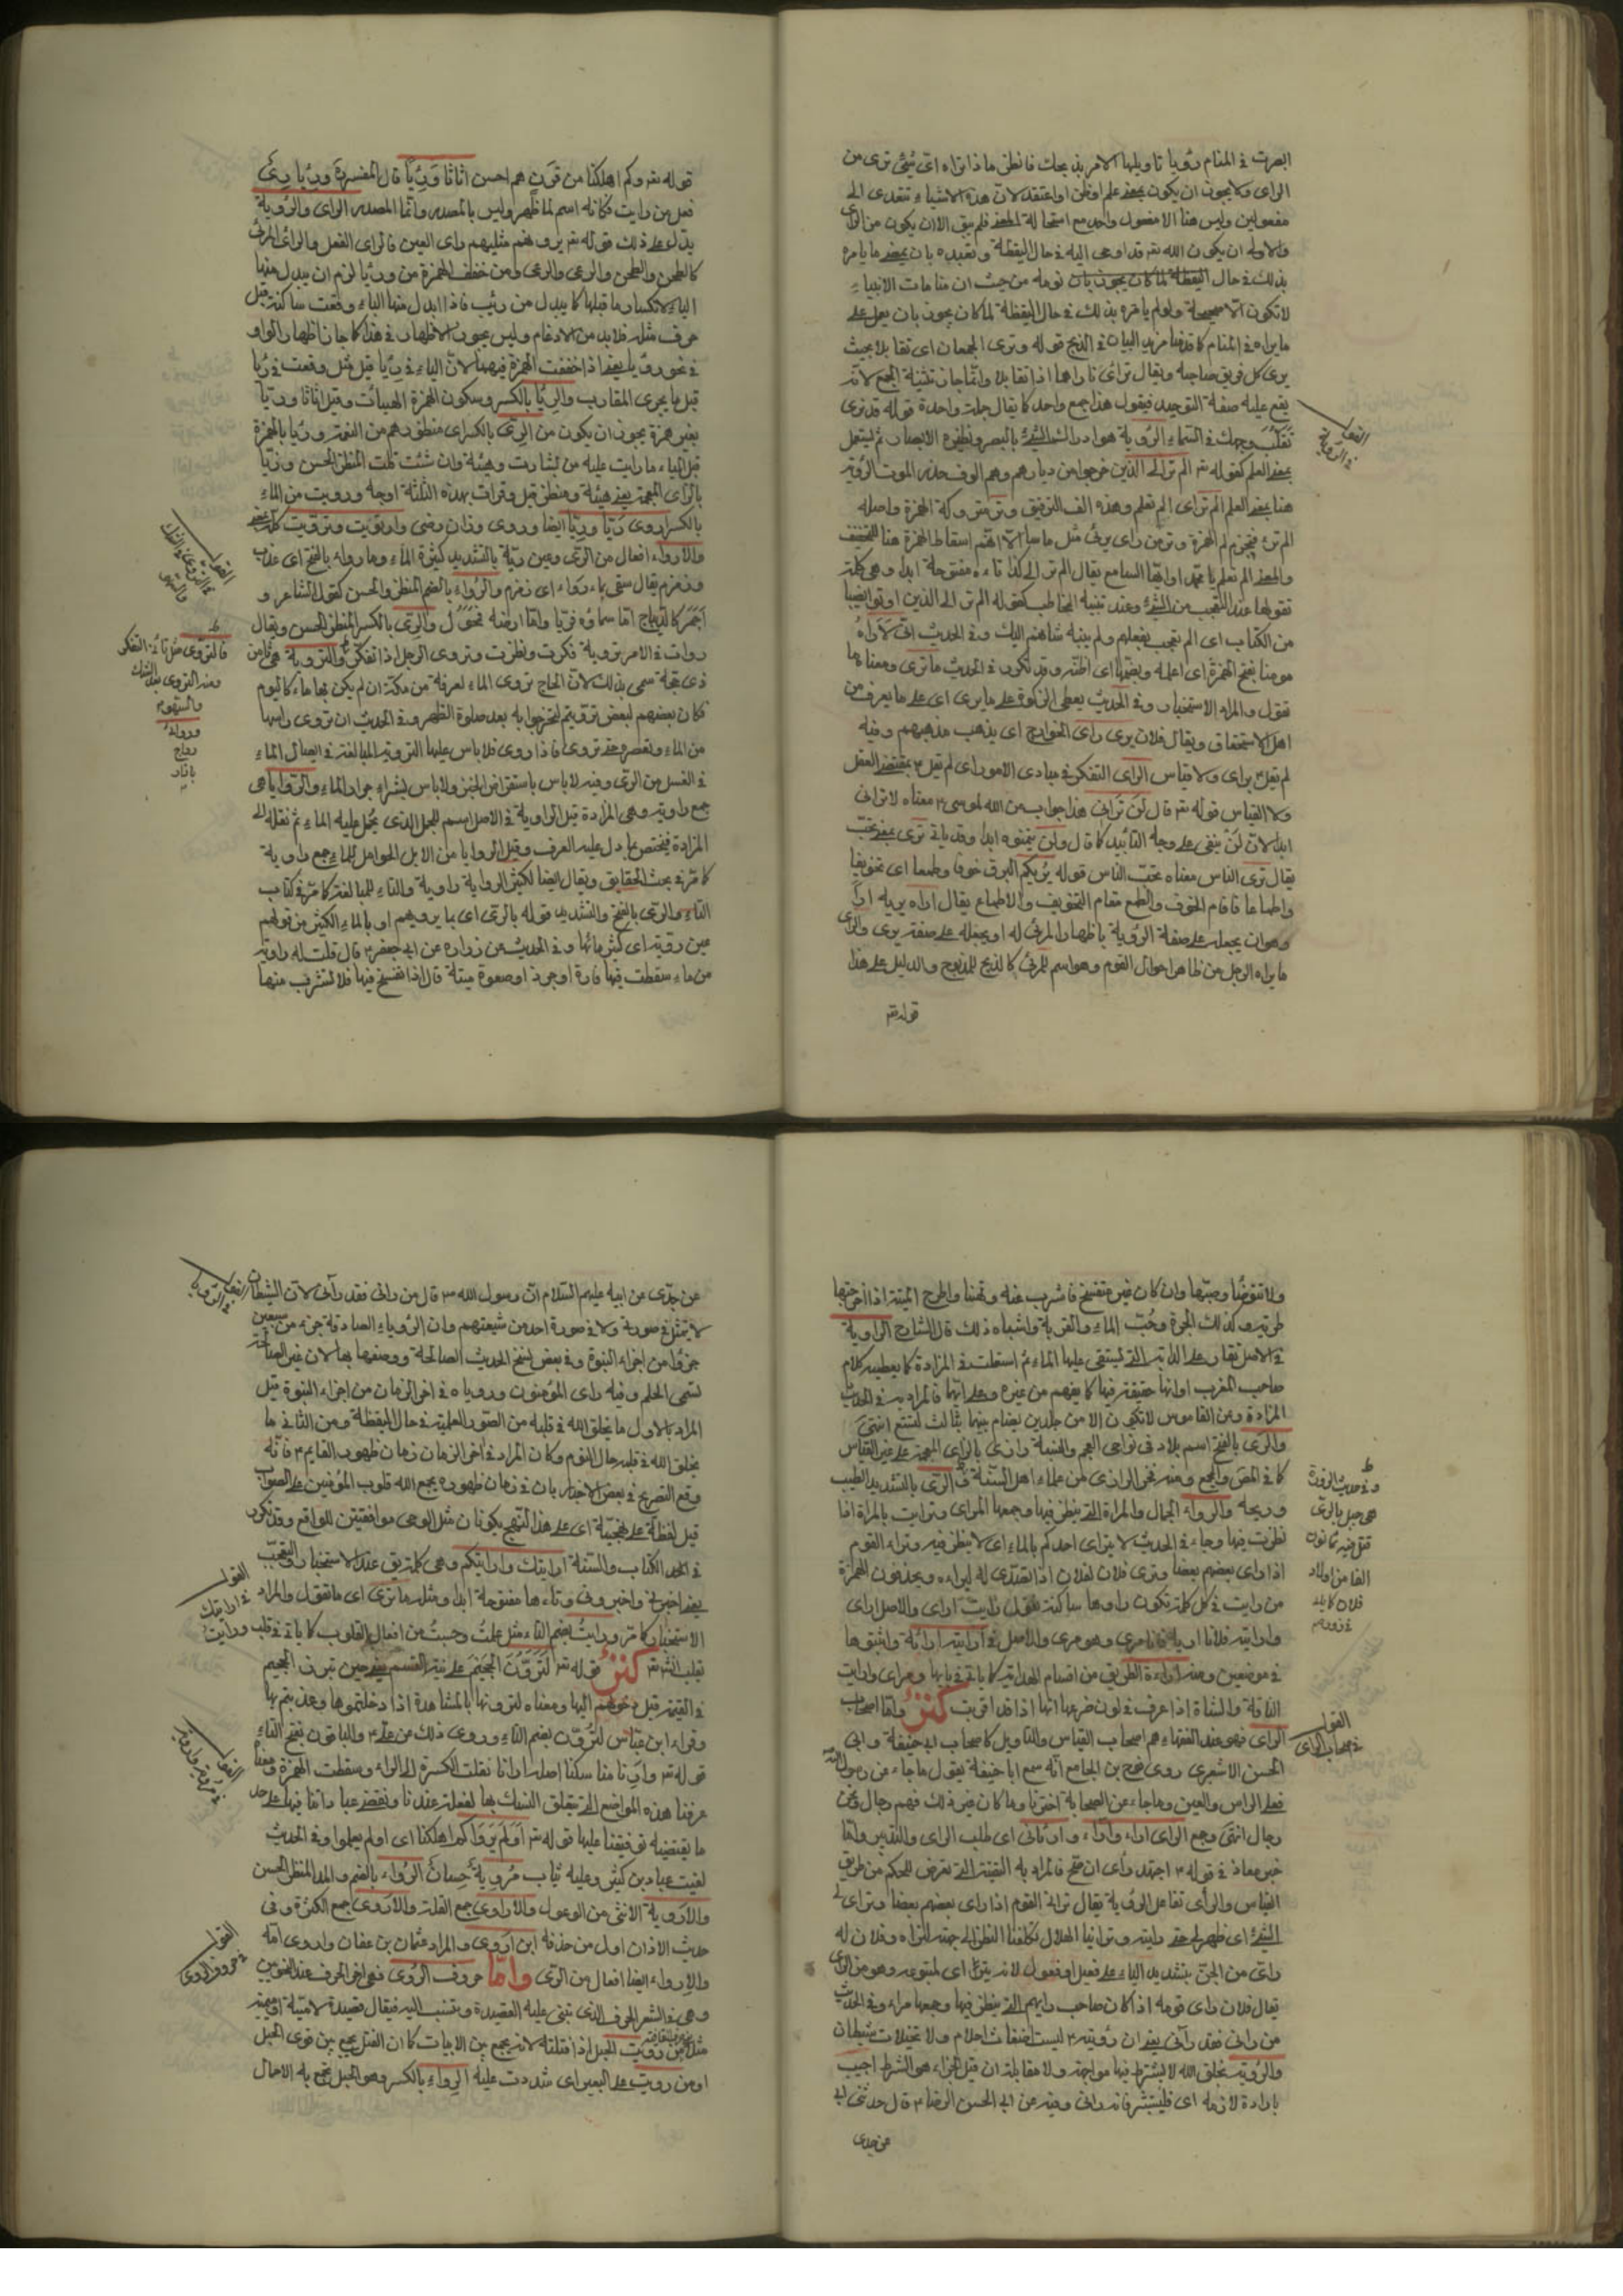 ابصرت في المنام رؤيا تاويلها الامر بذبحك فانظر ماذا تراه اي شيء ترى من
الراي ولا يجوز ان يكون بمعنى علم او ظن او اعتقد لان هذه الاشياء تتعدى الى
مفعولين وليس هنا الا مفعول واحد مع استحالة المعنى فلم يبق الا ان يكون من الراي
والاولى ان يكون الله تع قد اوحى اليه في حال اليقظة وتعبده بان يمضي ما يامره
بذلك في حال اليقظة لما كان يجوز بان نومه من حيث ان منامات الانبياء
لا تكون الا صحيحة ولو لم يامره بذلك في حال اليقظة لما كان يجوز بان يعمل على
ما يراه في المنام كما قدمنا مزيد البيان في الذبح قوله وترى الجمعان اي تقابلا بحيث
يرى كل فريق صاحبه ويقال تراءى ناراهما اذا تقابلا وانما جاز تثنية الجمع لانه
يقع عليه صفة التوحيد فيقول هذا جمع واحد كما يقال جملة واحدة قوله قد نرى
تقلب وجهك في السماء الرؤية هو ادراك الشيء بالبصر ونظيره الابصار ثم ليتعمل
بمعنى العلم كقوله تع الم تر الى الذين خرجوا من ديارهم وهم الوف حذر الموت الرؤية
هنا بمعنى العلم الم تر اي الم تعلم وهذه الف التوفيق وتر متروكة الهمزة واصله
الم ترء فيجزم لم الهمزة وتر من راى يرئى مثل ما سا الا انهم اسقاط الهمزة هنا للتخفيف
والمعنى الم تعلم يا محمد او ايها السامع يقال الم تر الى كذا تاءه مفتوحة ابدا وهي كلمة
تقولها عند التعجب من الشيء وعند تنبيه المخاطب كقوله الم تر الى الذين اوتوا نصيبا
من الكتاب اي الم تعجب بفعلهم ولم ينبه شانهم اليك وفي الحديث اني لاراه
مومنا بفتح الهمزة اي اعلمه وبضمها اي اظنه وقد تكون في الحديث ما ترى ومعناه ما
تقول والمراد الاستخبار وفي الحديث يعطى الزكوة على ما يرى اي على ما يعرف من
اهل الاستحقاق ويقال فلان يرى راى الخوارج اي يذهب مذهبهم وفيه
لم يقل براى ولا قياس الراى التفكر في مبادى الامور اي لم يقل بمقتضى العقل
ولا القياس قوله تع قال لن تراني هذا جواب من الله لموسى ع معناه لا تراني
ابدا لان لن ينفي على وجه التابيد كما قال ولن يتمنوه ابدا وقد ياتي ترى بمعنى تحب
يقال ترى الناس معناه تحب الناس قوله يريكم البرق خوفا وطمعا اي تخويفا
واطماعا فاقام الخوف والطمع مقام التخويف والاطماع يقال اراه يريه اراءة
وهو ان يجعله على صفة الرؤية باظهار المرئي له او يجعله على صفة يرى والراى
ما يراه الرجل من ظاهر احوال القوم وهو اسم للمرئي كالذبح للمذبوح والدليل على هذا
القول
في الرؤية
قوله تع
قوله تع وكم اهلكنا من قرن هم احسن اثاثا ورئيا قال المفسر ورئيا رئى
فعل من رايت فكانه اسم لما ظهر وليس بالمصدر وانما المصدر الراى والرؤية
يدل على ذلك قوله تع يرونهم مثليهم راى العين فالراى الفعل والرائى المرئى
كالطحن والطحن والرعى والرعى ومن خفف الهمزة من ورئيا لزم ان يبدل منها
الياء لانكسار ما قبلها كما يبدل من ذئب فاذا ابدل منها الياء وقعت ساكنة قبل
حرف مثله فلا بد من الادغام وليس يجوز الاظهار في هذا كما جاز اظهار الواو
في نحو رؤيا بعض اذا خففت الهمزة فيهما لان الياء في ريا قبل مثل وقعت في ريا
قبل ما يجرى المقارب والرئيا بالكسر وسكون الهمزة الهيئات وقيل اثاثا وريا
بغير همزة يجوز ان يكون من الري بالكسر اي منظرهم من النعمة وريا بالهمزة
قبل الياء ما رايت عليه من بشارت وهيئة وان شئت قلت المنظر الحسن وزيا
بالزاى المعجمة يعني هيئة ومنظر قيل وقرات بهذه الثلثة اوجه ورويت من الماء
بالكسر اروى ريا وريا ايضا وروى وزان رضى وارتويت وترويت كله بمعنى
والارواء افعال من الرى وعين رية بالتشديد كثيرة الماء وماء رواء بالفتح اي عذب
وزمزم يقال سقى بماء رواء اي زمزم والرواء بالضم المنظر والحسن كقول الشاعر و
احمر كالديباج اما سماؤه فريا واما ارضه فمحول والرى بالكسر المنظر الحسن ويقال
روات في الامر تروية فكرت ونظرت وتروى الرجل اذا تفكر والتروية هي ثامن
ذي حجة سمى بذلك لان الحاج تروى الماء لعرفة من مكة اذ لم يكن بها ماء كاليوم
فكان بعضهم لبعض ترويتم لتخرجوا به بعد صلوة الظهر وفي الحديث ان تروى راسها
من الماء وتعصره حتى تروى فاذا روى فلا باس عليها التروية المبالغة في ايصال الماء
في الغسل من الرى وفيه لا باس باستقراض الخبز ولا باس بشراء جرار الماء والروايا هي
جمع راوية وهي المزادة قيل الراوية في الاصل اسم للجمل الذى يحمل عليه الماء ثم نقله الى
المزادة فيختص بما دل عليه العرف وقيل الروايا من الابل الحوامل للماء جمع راوية
كما مر في بحث الحقايق ويقال ايضا لكثير الرواية راوية والتاء للمبالغة كما مر في كتاب
التاء والرى بالفتح والتشديد قوله بالرى اي بما يرويهم او بالماء الكثير من قولهم
عين روية اي كثير مائها وفي الحديث عن زرارة عن ابي جعفر ع قال قلت له راوية
من ماء سقطت فيها فارة او جرذ او صعوة ميتة قال اذا تفسخ فيها فلا تشرب منها
القول
في التروى في الثلث
فالتروى مثل تاء التفكر
ومنه التروى بعد الشك
والسهو
ولا تتوضا وصبها وان كان غير متفسخ فاشرب منه وتوضا واطرح الميتة اذا اخرجتها
طرية وكذلك الجرة وحب الماء والقربة واشباه ذلك قال الشارح الراوية
في الاصل يقال على الدابة التي ليستقى عليها الماء ثم استعملت في المزادة كما يعطيه كلام
صاحب المغرب او انها حقيقة فيها كما يفهم من غيره وعلى ايها فالمراد به في الحديث
المزادة وعن القاموس لا تكون الا من جلدين يضام بينها بثالث لتتسع انتهى
والرى بالفتح اسم بلاد في نواحى العجم والنسبة رازى بالزاى المعجمة على غير القياس
كما في المص والمجمع ومنه فخر الرازى لمن علماء اهل السنة والرى بالتشديد الطيب
وريحه والرواء الجمال والمراة التي ينظر فيها وجمعها المراى وتراءيت بالمراة اذا
نظرت فيها وجاء في الحديث لا يتراى احدكم بالماء اي لا ينظر فيه وتراء القوم
اذا راى بعضهم بعضا وترى فلان لفلان اذا تصدى له ليراه ويحذفون الهمزة
من رايت في كل كلمة تكون راوها ساكنة تقول رايت ارى والاصل اراى
واراية فلانا اريه فانا مرى وهو مرى والاصل في ارايته اراة واثبتوها
في موضعين ومنه اراءة الطريق من اقسام الهداية كما ياتي في بابها ومراى وارايت
الناقة والشاة اذا عرف في لون ضرعها انها اذا قد اقربت كنز واما اصحاب
الراى فهو عند الفقهاء هم اصحاب القياس والتاويل كاصحاب ابي حنيفة وابي
الحسن الاشعرى روى نوح بن الجامع انه سمع ابا حنيفة يقول ما جاء عن رسول الله
فعلى الراس والعين وما جاء عن الصحابة اخترنا وما كان غير ذلك فهم رجال ونحن
رجال انتهى وجمع الراى اراء وآراء واراءنى اي طلب الراى والتدبير واما
خبر معاذ في قوله ع اجتهد راى ان صح فالمراد به القضية التي تعرض للحكم من طريق
القياس والراى تفاعل الرؤية يقال تراءى القوم اذا راى بعضهم بعضا وتراى لى
الشيء اي ظهر لى حتى رايته وتراءينا الهلال تكلفنا النظر الى جهته لنراه وفلان له
رائى من الجن بتشديد الياء على فعيل او فعول لانه يتراى لمتبوعه وهو من الراى
يقال فلان راى قومه اذا كان صاحب رايهم التي ينظر فيها وجمعها مراء وفي الحديث
من رانى فقد رآنى يعني ان رؤيته ع ليست اضغاث احلام ولا تخيلات شيطان
والرؤية بخلق الله لا يشترط فيها مواجهة ولا مقابلة ان قيل الجزاء هو الشرط اجيب
بارادة لازمه اي فليستبشر فانه رانى وفيه عن ابي الحسن الرضا ع قال حدثني ابي
وفي حديث الزورة
هي جبل بالرى
قتل فيه ثمانون
الفا من اولاد
فلان كما ياتي
في زور
القول
في اصحاب الراى
عن جدى
عن جدى عن ابيه عليهم السلام ان رسول الله ص قال من رانى فقد رآنى لان الشيطان
لا يتمثل في صورتى ولا في صورة احد من شيعتهم وان الرؤياء الصادقة جزء من سبعين
جزوا من اجزاء النبوة وفي بعض نسخ الحديث الصالحة ووصفها بها لان غير الصالحة
تسمى الحلم وفيه راى المؤمنون ورؤياه في اخر الزمان من اجزاء النبوة قيل
المراد بالاول ما يخلق الله في قلبه من الصور العلمية في حال اليقظة ومن الثانى ما
يخلق الله في قلبه حال النوم وكان المراد في اخر الزمان زمان ظهور القايم ع فانه
وقع التصريح في بعض الاخبار بان في زمان ظهوره يجمع الله قلوب المؤمنين على الصواب
قيل لفظة على نهجية اي على هذا النهج يكونان مثل الوحى موافقتين للواقع وقد تكون
في الكتاب والسنة ارايتك وارايتكم وهي كلمة يق عند الاستخبار والتعجب
بمعنى اخبرنى واخبرونى وتاءها مفتوحة ابدا ومثله ما ترى اي ما تقول والمراد
الاستخبار كما مر ورايت بضم التاء مثل علمت وحسبت من افعال القلوب كما ياتي في قلب ورايت
كنز قوله تع لترون الجحيم على نية القسم يعني حين تبرز الجحيم
في القيمة قبل دخولهم اليها ومعناه لترونها بالمشاهدة اذا دخلتموها وعذبتم بها
وقراء ابن عباس لترون بضم التاء وروى ذلك عن على ع والباقون بفتح التاء
قوله تع وارنا مناسكنا اصله ارانا نقلت الكسرة الى الراء وسقطت الهمزة ومعناه
عرفنا هذه المواضع التي يتعلق النسك بها لنفعله عندنا ونقضى عبادتنا فيها على حد
ما يقتضيه توفيقنا عليها قوله تع اولم يروا كم اهلكنا اي اولم يعلموا وفي الحديث
لقيت عباد بن كثير وعليه ثياب مروية حسان الرواء بالضم والمد المنظر الحسن
والاروية الانثى من الوعول والاراوى جمع القلة والاروى جمع الكثرة وفي
حديث الاذان اول من حذفه ابن اروى والمراد عثمان بن عفان واروى امه
والارواء ايضا افعال من الرى واما حروف الروى فهو اخر الحرف عند العروضين
وهي في الشعر الحرف الذى تبنى عليه القصيدة وتنسب اليه فيقال قصيدة لامية او ميمية
مثلا من رويت الحبل اذا فتلته لانه يجمع بين الابيات كما ان الفتل يجمع بين قوى الحبل
او من رويت على البعير اي شددت عليه الرواء بالكسر وهو الحبل يجمع به الاحمال
القول
في الرؤيا
القول
في ارايتك
القول
القول
في حروف الروى